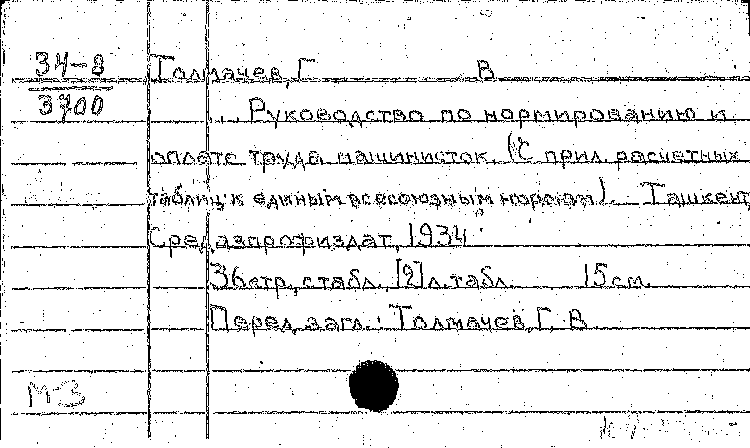 34-8 Толмачев, Г В
3700
... Руководство по нормированию и
оплате труда машинисток. (С прил. расчетных
таблиц к единым всесоюзным нормам). Ташкент,
Средазпрофиздат, 1934
36 стр., с табл., [2] л. табл. 15 см.
Перед загл.: Толмачев, Г. В
М-3